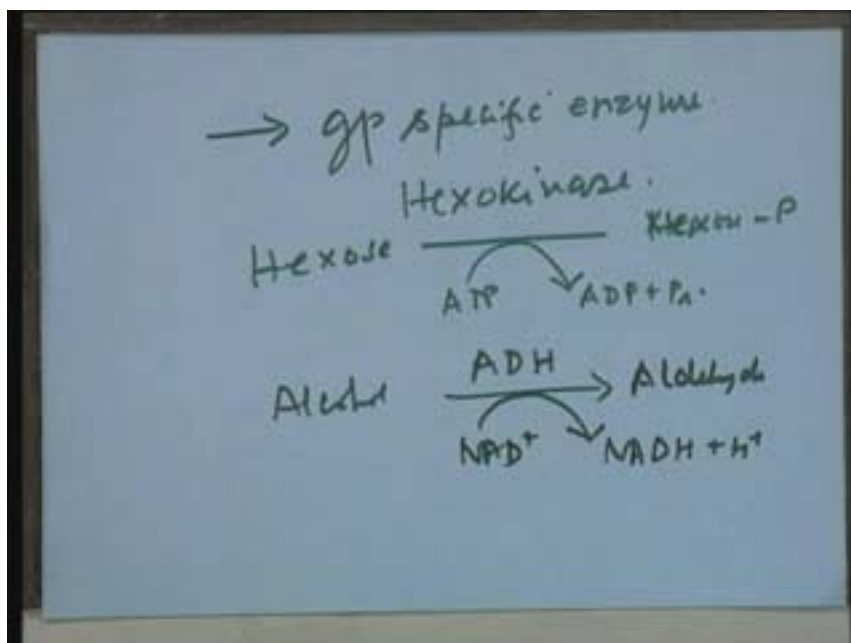 → gp specific enzyme.
Hexokinase.
Hexose Hexose-P
ATP ADP + Pi.
ADH
Alcohol → Aldehyde
NAD+ NADH + H+